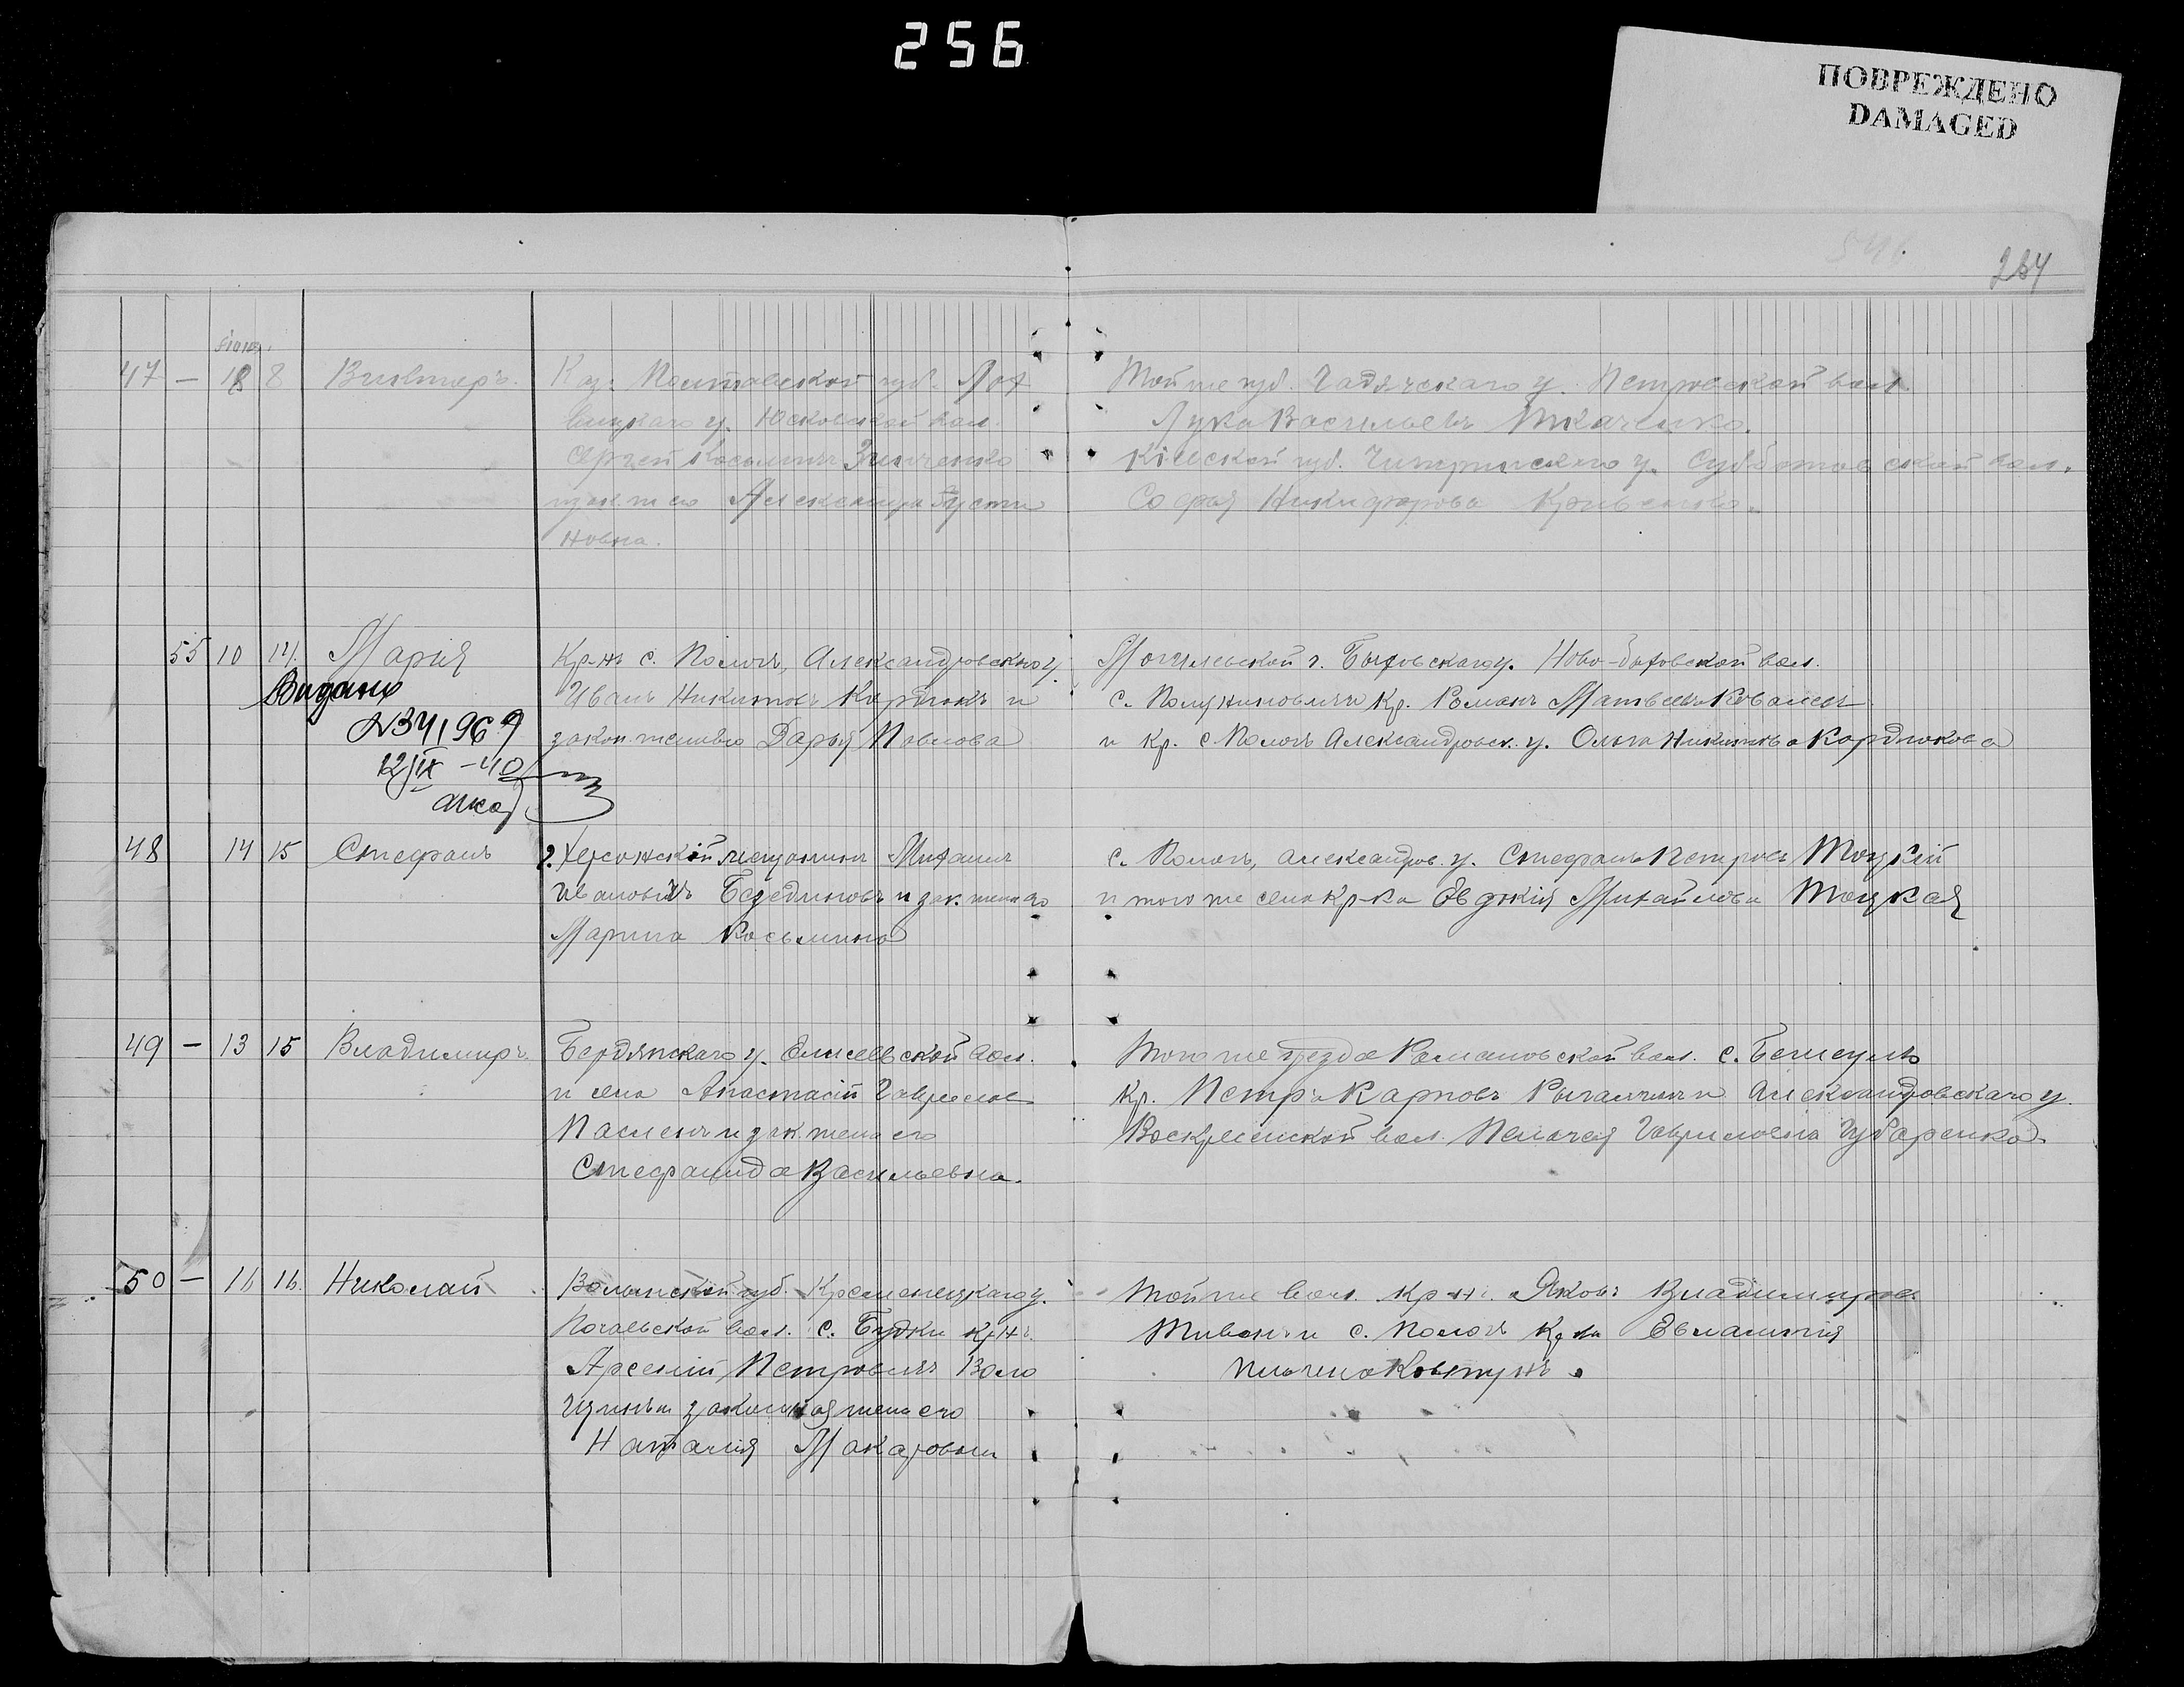 256
ПОВРЕЖДЕНО
DAMAGED
264
47 — 8 Викторъ. Каз. Полтавской губ. Лох
вицкаго у. Юсковской вол.
Сергей Косьминъ Зинченко
Александра Іусти
новна.
Той же губ. Гадячскаго у. Петровской вол.
Лука Васильевъ Ткаченко.
Кіевской губ. Чигиринскаго у. Субботовской вол.
Софья Никифорова Кривенко.
55 10 14. Марія Кр-нъ с. Пологъ, Александровскаго у.
Иванъ Никитовъ Кордюкъ и
закон. жена его Дарья Павлова
Могилевской г. Быховскаго у. Ново-быховской вол.
кр. Романъ Матвеевъ Ковалевъ
и кр. с. Пологъ Александровск. у. Ольга Никитова Кордюкова
Видано
N341969
12/IX-40
48 14 15 Стефанъ г. Херсонской мещанинъ Михаилъ
Ивановичъ и зак. жена его
Марина Косьмина
с. Пологъ, Александров. у. Стефанъ Петровъ Тоцкій
и того же села кр-ка Евдокія Михайлова Тоцкая
49 — 13 15 Владимиръ Бердянскаго у. Елисеевской вол.
и села Анастасій Гавриловъ
и зак. жена его
Стефанида Васильевна.
Того же уезда Романовской вол. с.
Кр. Петръ Карповъ и Александровскаго у.
Воскресенской вол. Пелагея Гавриловна Губаренкова
50 — 16 16. Николай Волынской губ. Кременецкаго у.
Почаевской вол. с. Будки кр-нъ
Арсеній Петровичъ Воло
щукъ и законная жена его
Наталія Макаровна
Той же вол. кр-нъ. Яковъ Владимировъ
и с. Пологъ кр-ка Евлампія
Ковтунъ.